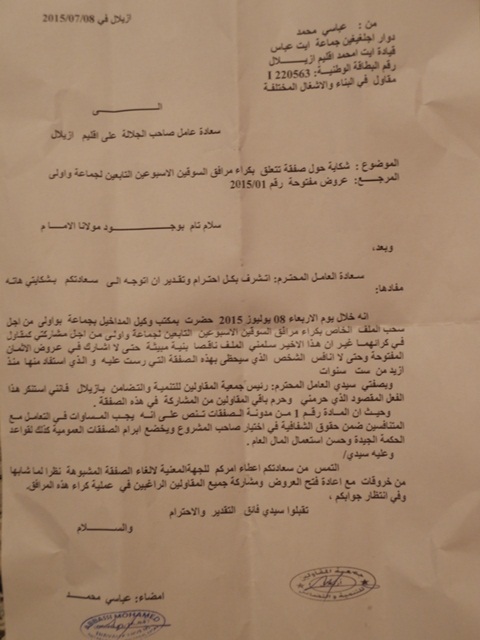 ازيلال في 2015/07/08
من : عباسي محمد
دوار اجلغيغين جماعة ايت عباس
قيادة ايت امحمد اقليم ازيـــــلال
رقم البطاقة الوطنية: I 220563
مقاول في البناء والاشغال المختلفة
الـــــــى
سعادة عامل صاحب الجلالة على اقليم ازيلال
الموضوع : شكاية حول صفقة تتعلق بكراء مرافق السوقين الاسبوعين التابعين لجماعة واولى
المرجــع: عروض مفتوحة رقم 2015/01
سلام تام بوجـــــود مولانا الامـــام
وبعد،
سعادة العامـل المحترم: اتشرف بكـل احترام وتقديـر ان اتوجـه الـى سعـادتكم بشكايتي هاتـه
مفادها:
انه خلال يوم الاربعاء 08 يوليوز 2015 حضرت بمكتب وكيل المداخيل بجماعة بواولى من اجل
سحب الملف الخاص بكراء مرافق السوقين الاسبوعين التابعين لجماعة واولى من اجل مشاركتي كمقاول
في كرائهمـا غيـر ان هـذا الاخيـر سلمني الملـف ناقصـا بنيـة مبيتـة حتـى لا اشـارك فـي عـروض الاثمـان
المفتوحة وحتى لا انافس الشخص الذي سيحظى بهذه الصفقة التي رست عليـه و الذي استفاد منها منـذ
ازيد من ست سنوات
وبصفتي سيدي العامل المحترم: رئيس جمعية المقاولين للتنمية والتضامن بـازيلال فـانني استنكر هـذا
الفعل المقصود الذي حرمني وحرم باقي المقاولين من المشاركة في هذه الصفقة .
وحيـث ان المـادة رقـم 1 مـن مدونـة الصـفقات تـنص علـى انـه يجـب المسـاوات فـي التعامـل مـع
المتنافسين ضمن حقوق الشفافية في اختيار صاحب المشروع ويخضع ابرام الصفقات العمومية كذلك لقواعد
الحكمة الجيدة وحسن استعمال المال العام .
وعليه سيدي/
التمس من سعادتكم اعطاء امركم للجهةالمعنية لالغاء الصفقة المشبوهة نظرا لما شابها
من خروقات مع اعادة فتح العروض ومشاركة جميع المقاولين الراغبين في عملية كراء هذه المرافق.
وفي انتظار جوابكم ،
تقبلوا سيدي فائق التقدير والاحترام
والســـــلام
امضاء: عباسي محمـــد
جمعية المقاولين
للتنمية و التضامن
ABBASSI MOHAMED